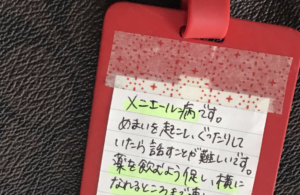 メニエール病です。
めまいを起こし、ぐったりして
いたら話すことが難しいです。
薬を飲むよう促し、横に
なれるところまで